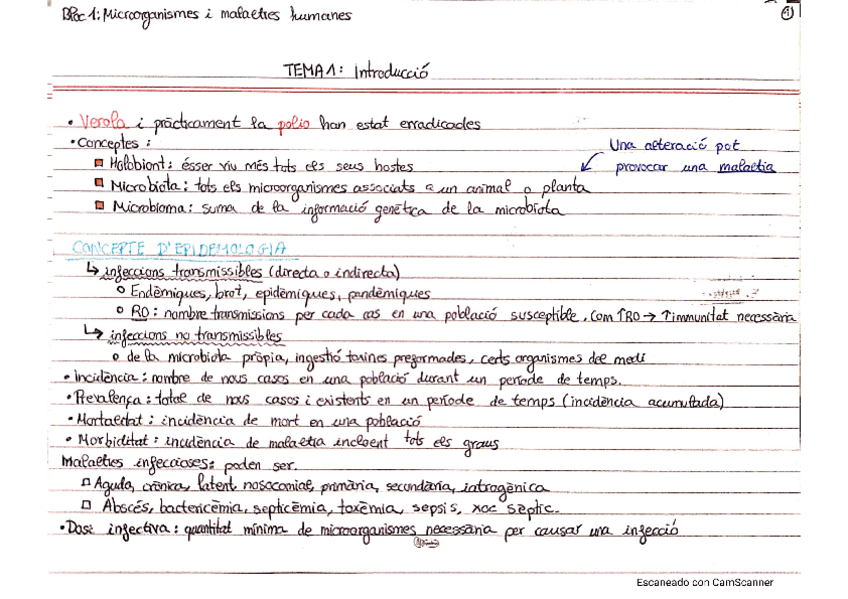 Bloc 1: Microorganismes i malalties humanes
1
TEMA 1: Introducció
• Verola i pràcticament la polio han estat erradicades
• Conceptes:
Holobiont: ésser viu més tots els seus hostes
Microbiota: tots els microorganismes associats a un animal o planta
Microbioma: suma de la informació genètica de la microbiota
Una alteració pot
provocar una malaltia
CONCEPTE D'EPIDEMOLOGIA
↳ infeccions transmissibles (directa o indirecta)
o Endèmiques, brot, epidèmiques, pandèmiques
o R0: nombre transmissions per cada cas en una població susceptible. Com ↑R0 → ↑immunitat necessària
↳ infeccions no transmissibles
o de la microbiota pròpia, ingestió toxines preformades, certs organismes del medi
• Incidència: nombre de nous casos en una població durant un període de temps.
• Prevalença: total de nous casos i existents en un període de temps (incidència acumultada)
• Mortalitat: incidència de mort en una població
• Morbiditat: incidència de malaltia incloent tots els graus
Malalties infeccioses: poden ser.
Aguda, crònica, latent, nosocomial, primària, secundària, iatrogènica
Abscés, bacterièmia, septicèmia, toxèmia, sepsis, xoc sèptic.
• Dosi infectiva: quantitat mínima de microorganismes necessària per causar una infecció
Escaneado con CamScanner